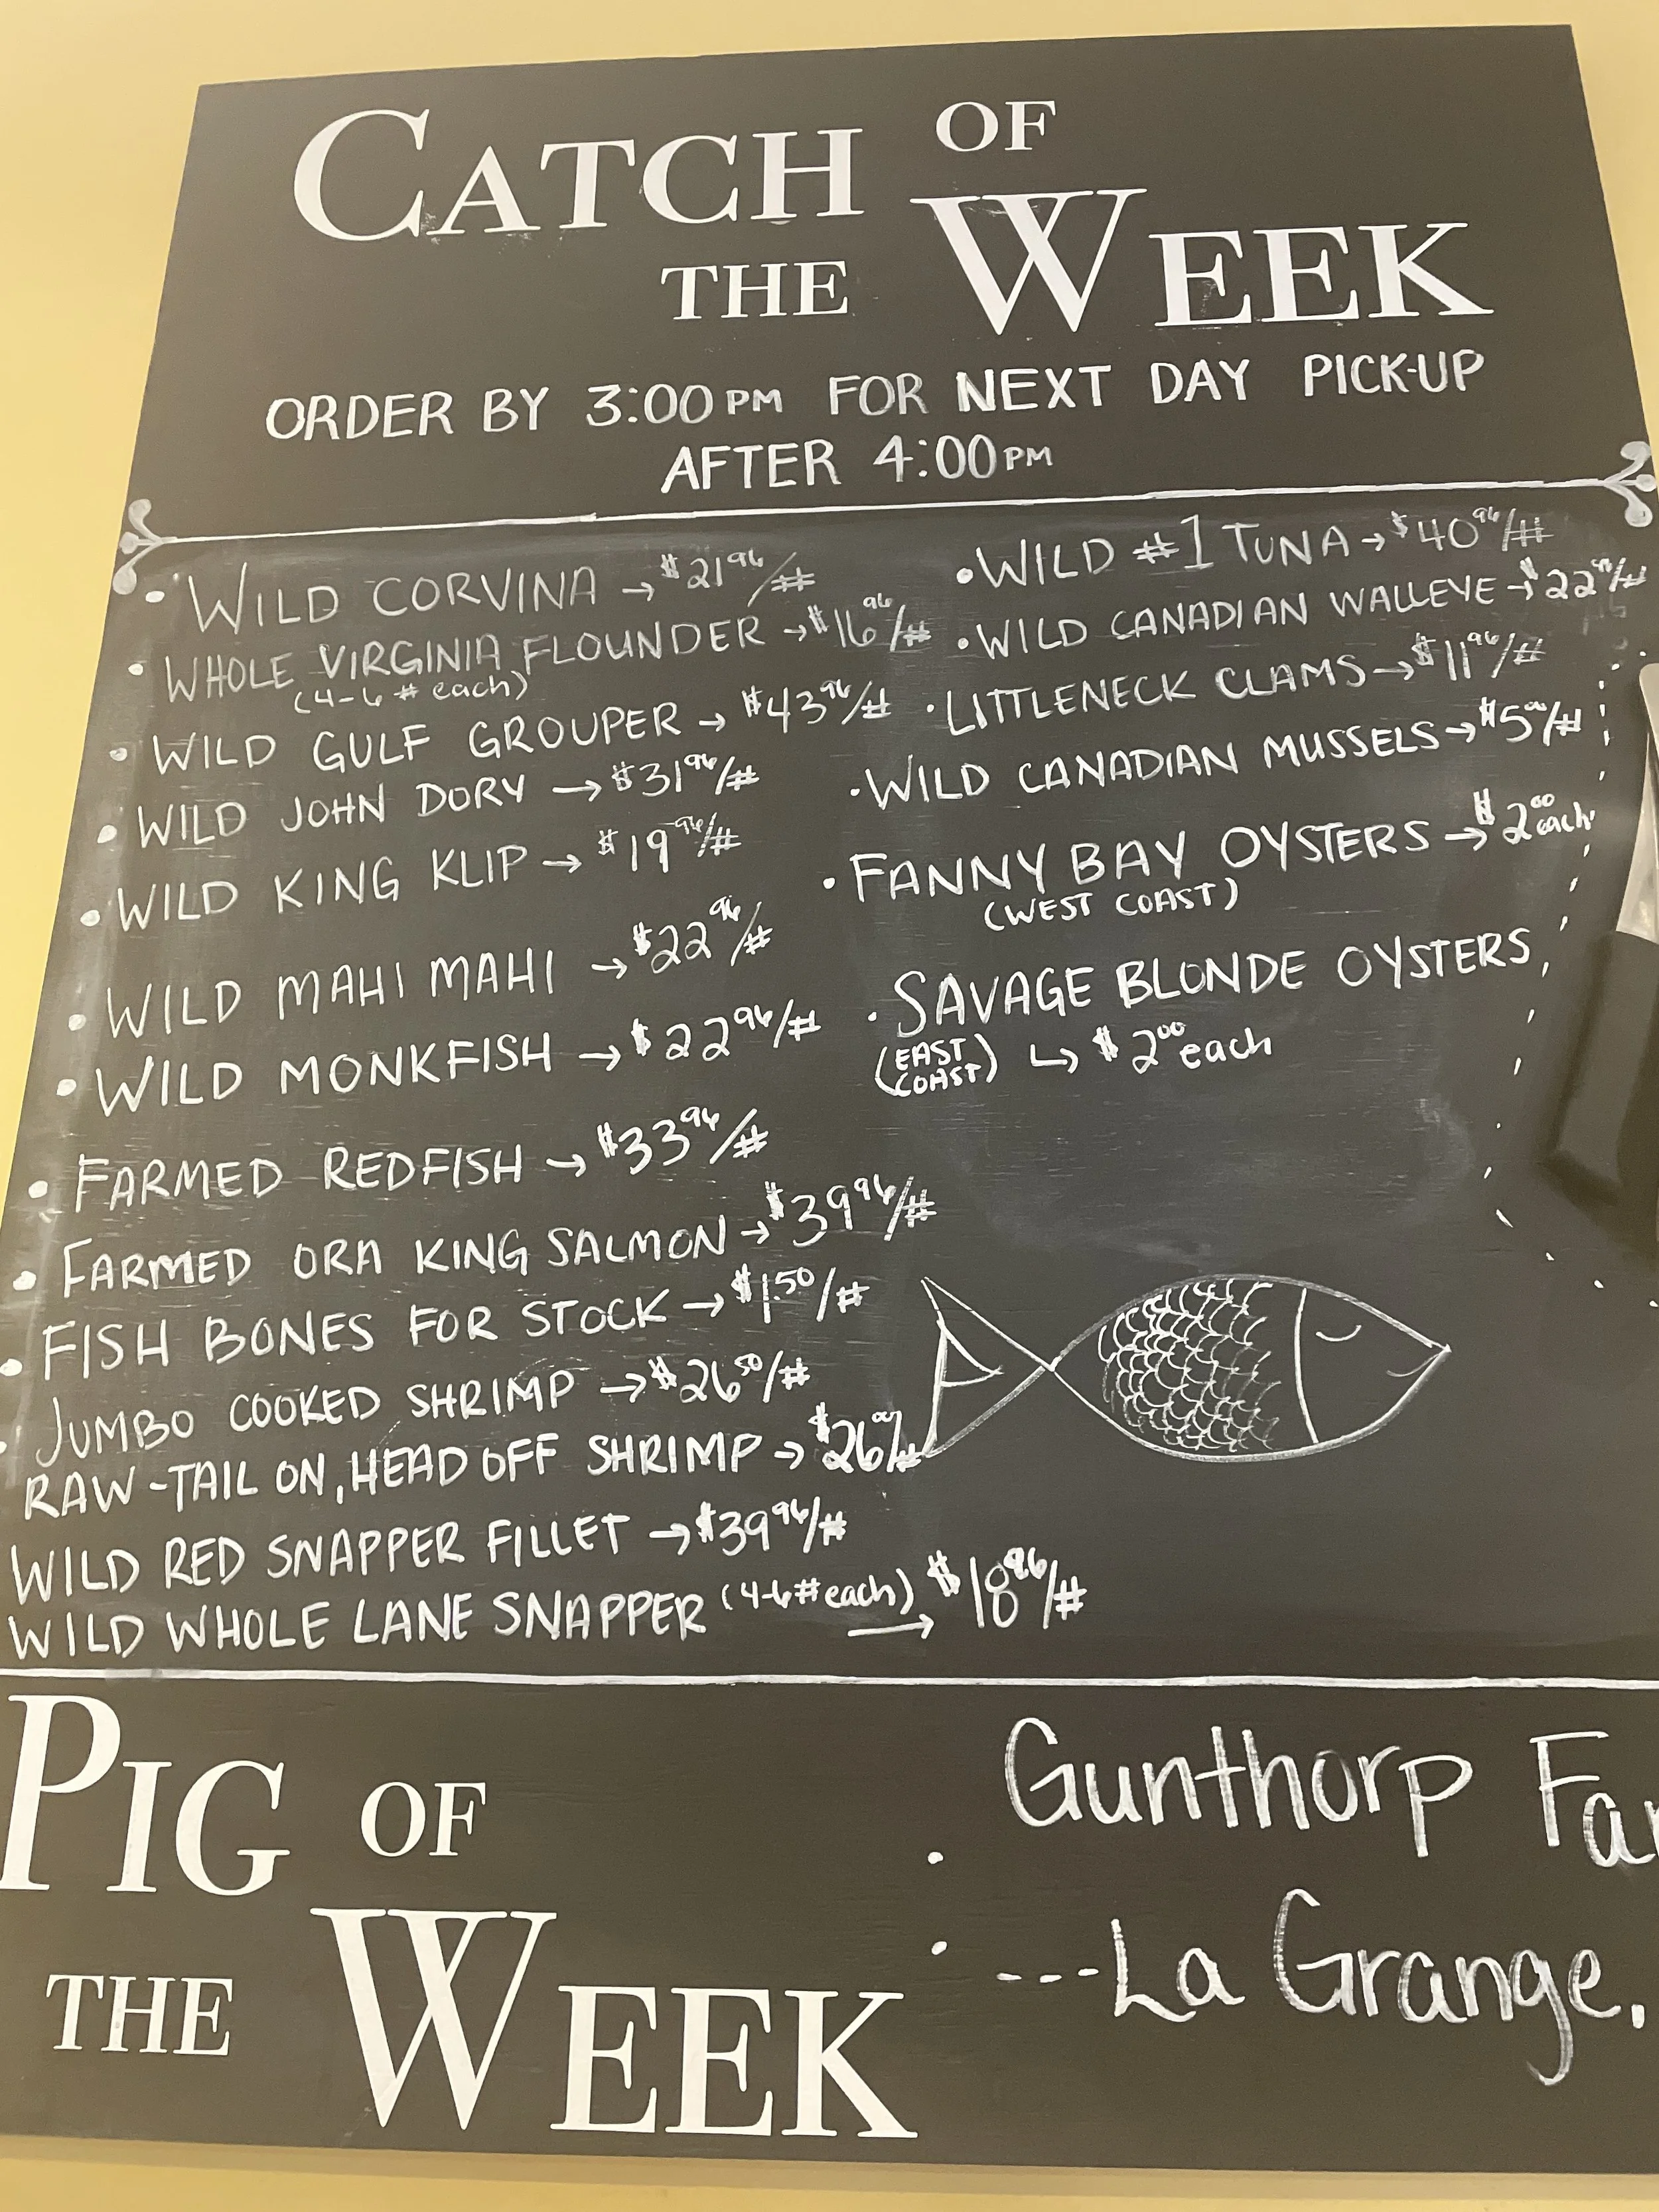 CATCH OF
THE WEEK
ORDER BY 3:00PM FOR NEXT DAY PICK-UP
AFTER 4:00PM
• WILD CORVINA → $21 96/#
• WHOLE VIRGINIA FLOUNDER → $16 96/#
(4-6 # each)
• WILD GULF GROUPER → $43 96/#
• WILD JOHN DORY → $31 96/#
• WILD KING KLIP → $19 96/#
• WILD MAHI MAHI → $22 96/#
• WILD MONKFISH → $22 96/#
• FARMED REDFISH → $33 96/#
• FARMED ORA KING SALMON → $39 96/#
• FISH BONES FOR STOCK → $1.50/#
• JUMBO COOKED SHRIMP → $26 50/#
RAW-TAIL ON, HEAD OFF SHRIMP → $26
WILD RED SNAPPER FILLET → $39 96/#
WILD WHOLE LANE SNAPPER (4-6# each) → $18 96/#
• WILD #1 TUNA → $40 96/#
• WILD CANADIAN WALLEYE → $22 96/#
• LITTLENECK CLAMS → $11 96/#
• WILD CANADIAN MUSSELS → $5 00/#
• FANNY BAY OYSTERS → $2 00 each
(WEST COAST)
• SAVAGE BLONDE OYSTERS
(EAST COAST) ↳ $2 00 each
PIG OF
THE WEEK
: Gunthorp Far
---La Grange,